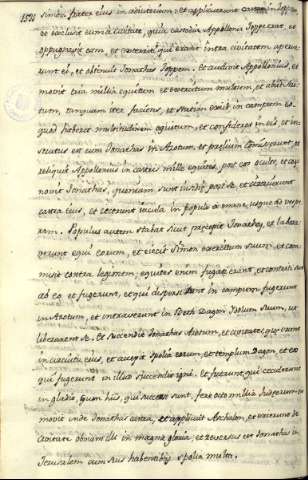 Simon frater eius in adiutorium: et applicuerunt castra in Joppe,
et exclusit eum a civitate, quia custodia Appollonij Joppe erat, et
oppugnavit eam, et exterriti qui erant intra civitatem aperue-
runt ei, et obtinuit Jonathas Joppem. Et audivit Appollonius, et
movit tria millia equitum et exercitum multum, et abiit Azo-
tum, tanquam iter faciens, et statim exiit in campum eo
quod haberet multitudinem equitum, et confideret in eis, et in-
secutus est eum Jonathas in Azotum, et prelium commiserunt, et
reliquit Appollonius in castris mille equites, post eos occulte, et cog-
novit Jonathas, quoniam sunt insidiæ post se, et circuierunt
castra eius, et iecerunt iacula in populum a mane, usque ad vespe-
ram. Populus autem stabat sicut preceperat Jonathas, et labora-
verunt equi eorum, et eiecit Simon exercitum suum, et com-
misit contra legionem; equites enim fugati erant, et contriti sunt
ab eo, et fugerunt, et qui dispersi sunt in campum fugerunt
in Azotum, et intraverunt in Beth Dagon Idolum suum, ut
liberarent se. Et succendit Jonathas Azotum, et civitates que erant
in circuitu eius, et accepit spolia eorum, et templum Dagon, et eos
qui fugerunt in illud succendit igni. Et fuerunt qui ceciderunt
in gladio, cum his, qui succensi sunt, fere octo millia
movit inde Jonathas castra, et applicuit Aschalon, et exierunt de
civitate obviam illi in magna gloria, et reversus est Jonathas in
Jerusalem cum suis habentibus spolia multa.